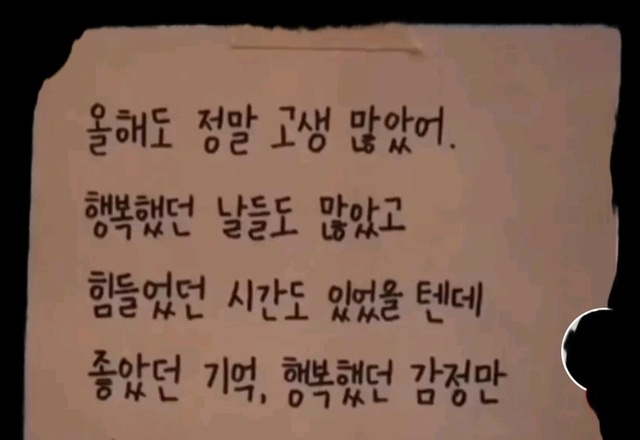 올해도 정말 고생 많았어.
행복했던 날들도 많았고
힘들었던 시간도 있었을 텐데
좋았던 기억, 행복했던 감정만